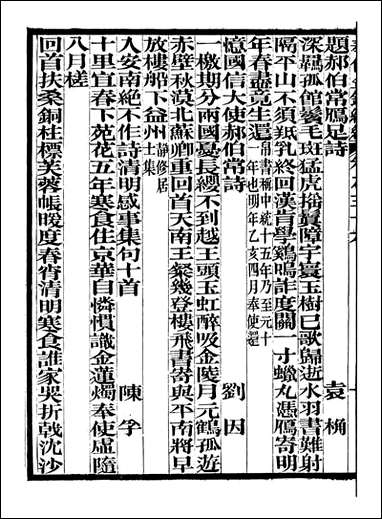 題郝伯常鴈足詩
袁桷
深羈孤館鬢毛斑猛虎揩翼障宇寰玉樹已歌歸逝水羽書難射
隔平山不須羝乳終回漢肯學鷄鳴詐度關一寸蠟丸憑鴈寄明
年春盡竟生還帛書稱中統十五年乃至元十一年也明年乙亥四月奉使還
憶國信大使郝伯常詩
劉因
一檄期分兩國憂長纓不到越王頭玉虹醉吸金陵月元鶴孤遊
赤壁秋漠北蘇卿重回首天南王粲幾登樓飛書寄與平南將早
放樓船下益州靜修居士集
入安南絕不作詩清明感事集句十首
陳孚
十里宜春下苑花五年寒食住京華自憐慣識金蓮燭奉使虛隨
八月槎
回首扶桑銅柱標芙蓉帳暖度春宵清明寒食誰家哭折戟沈沙